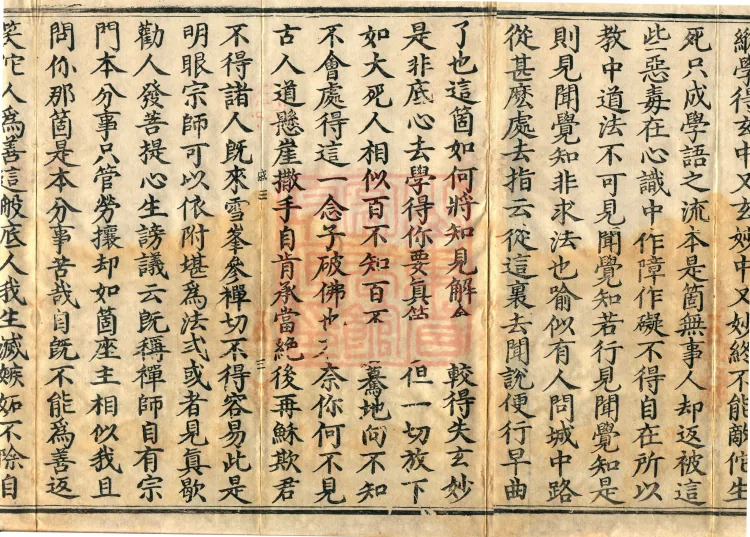 縱學得玄中又玄妙中又妙終不能敵佗生
死只成學語之流本是箇無事人却返被這
些惡毒在心識中作障作礙不得自在所以
教中道法不可見聞覺知若行見聞覺知是
則見聞覺知非求法也喻似有人問城中路
從甚麽處去指云從這裏去聞說便行早曲
了也這箇如何將知見解較得失玄妙
是非底心去學得你要眞但一切放下
如大死人相似百不知百不驀地向不知
不會處得這一念子破佛也奈你何不見
古人道懸崖撒手自肯承當絕後再穌欺君
不得諸人旣來雪峯參禪切不得容易此是
明眼宗師可以依附堪爲法式或者見眞歇
勸人發菩提心生謗議云旣稱禪師自有宗
門本分事只管勞攘却如箇座主相似我且
問你那箇是本分事苦哉自旣不能爲善返
笑佗人爲善這般底人我生滅嫉妬不除自